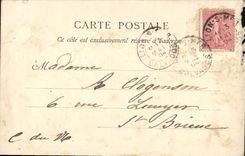 CARTE POSTALE
Ce côté est exclusivement réservé à l'adresse
Madame
A. Clogenson
6 rue
St Brieuc
C. du N.